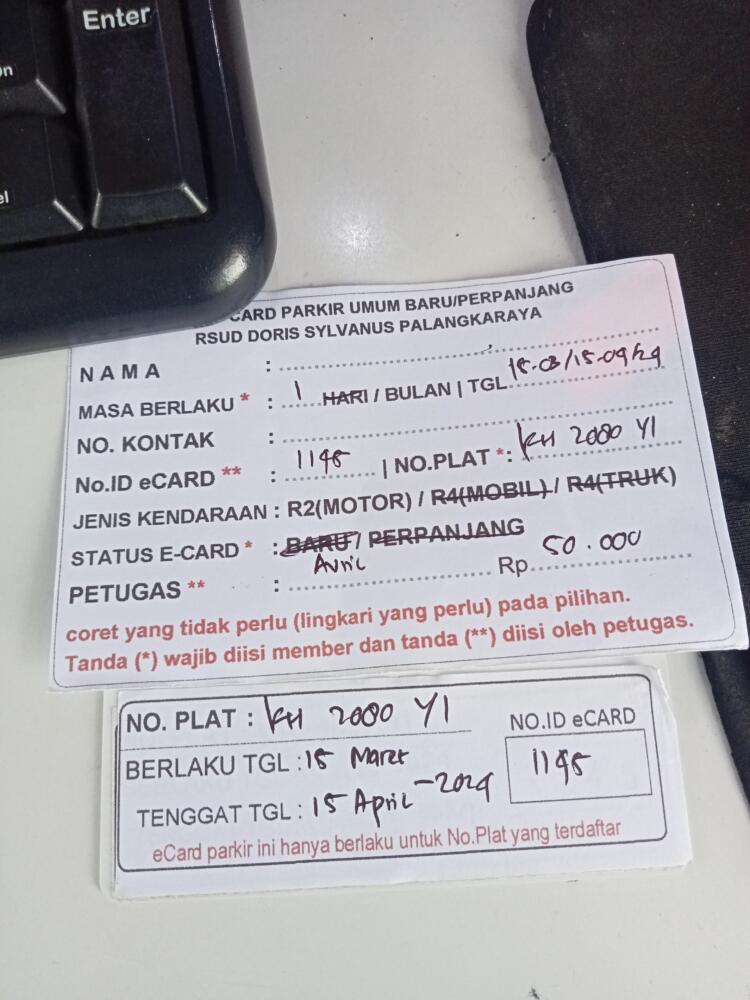 Enter
CARD PARKIR UMUM BARU/PERPANJANG
RSUD DORIS SYLVANUS PALANGKARAYA
NAMA :
MASA BERLAKU * : 1 HARI / BULAN | TGL 15.03/15.04/24
NO. KONTAK :
No.ID eCARD ** : 1195 | NO.PLAT *: KH 2080 YI
JENIS KENDARAAN : R2(MOTOR) / R4(MOBIL) / R4(TRUK)
STATUS E-CARD * : BARU / PERPANJANG
PETUGAS ** : April Rp 50.000
coret yang tidak perlu (lingkari yang perlu) pada pilihan.
Tanda (*) wajib diisi member dan tanda (**) diisi oleh petugas.
NO. PLAT : KH 2080 YI
NO.ID eCARD
BERLAKU TGL : 15 Maret
1195
TENGGAT TGL : 15 April - 2024
eCard parkir ini hanya berlaku untuk No.Plat yang terdaftar